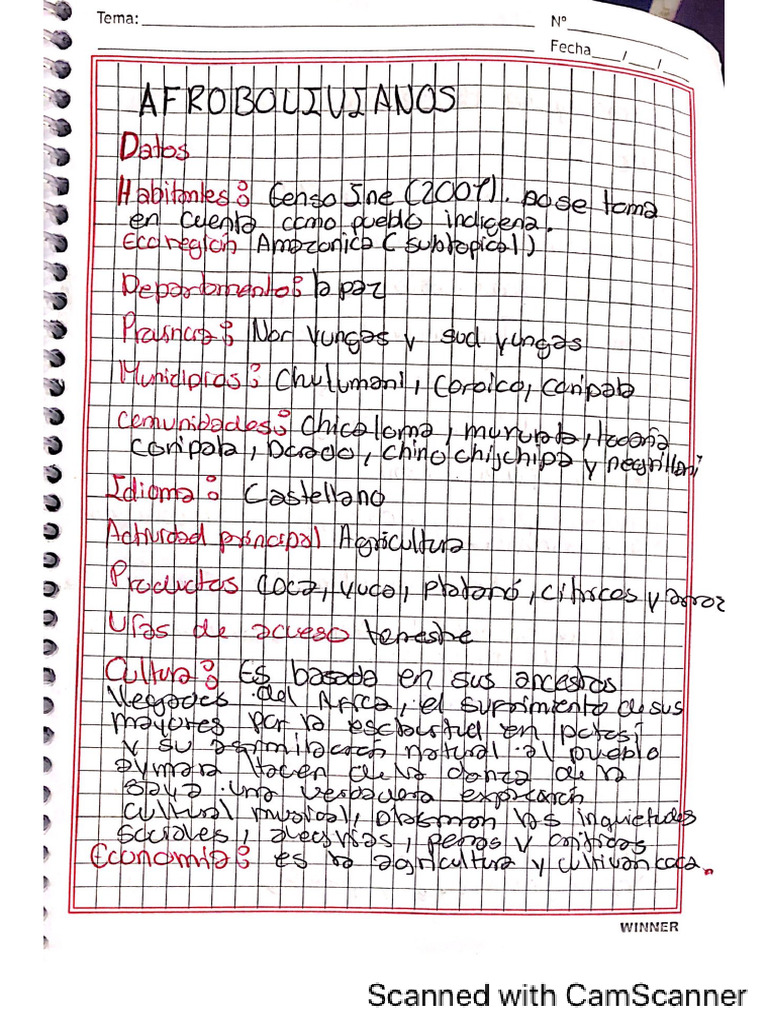 Tema:
N°
Fecha / /
AFROBOLIVIANOS
Datos
Habitantes: Censo Ine (2001). no se toma
en cuenta como pueblo indigena.
Ecoregión Amazonica (subtopical)
Departamento: la paz
Provincia: Nor yungas y sud yungas
Municipios: Chulumani, Coroico, Coripata
Comunidades: Chicaloma, mururata, tocaña
Coripata, Dorado, Chino chijchipa y negrillani
Idioma: Castellano
Actividad principal Agricultura
Productos coca, yuca, platano, citricos y arroz
Vias de acceso terrestre
Cultura: Es basada en sus ancestros
llegados del Africa, el suprimiento de sus
mayores por la esclavitud en potosi
y su asimilación natural al pueblo
aymara hacen de la danza de la
saya una verdadera expresión
cultural musical, plasman las inquietudes
sociales, alegrias, penas y criticas
Economia: es la agricultura y cultivan coca.
WINNER
Scanned with CamScanner